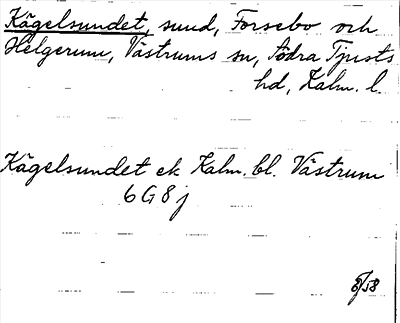 Kägelsundet, sund, Forsebo och
Helgerum, Västrums sn, Södra Tjusts
hd, Kalm. l.
Kägelsundet ek Kalm. bl. Västrum
6G8j
8/58